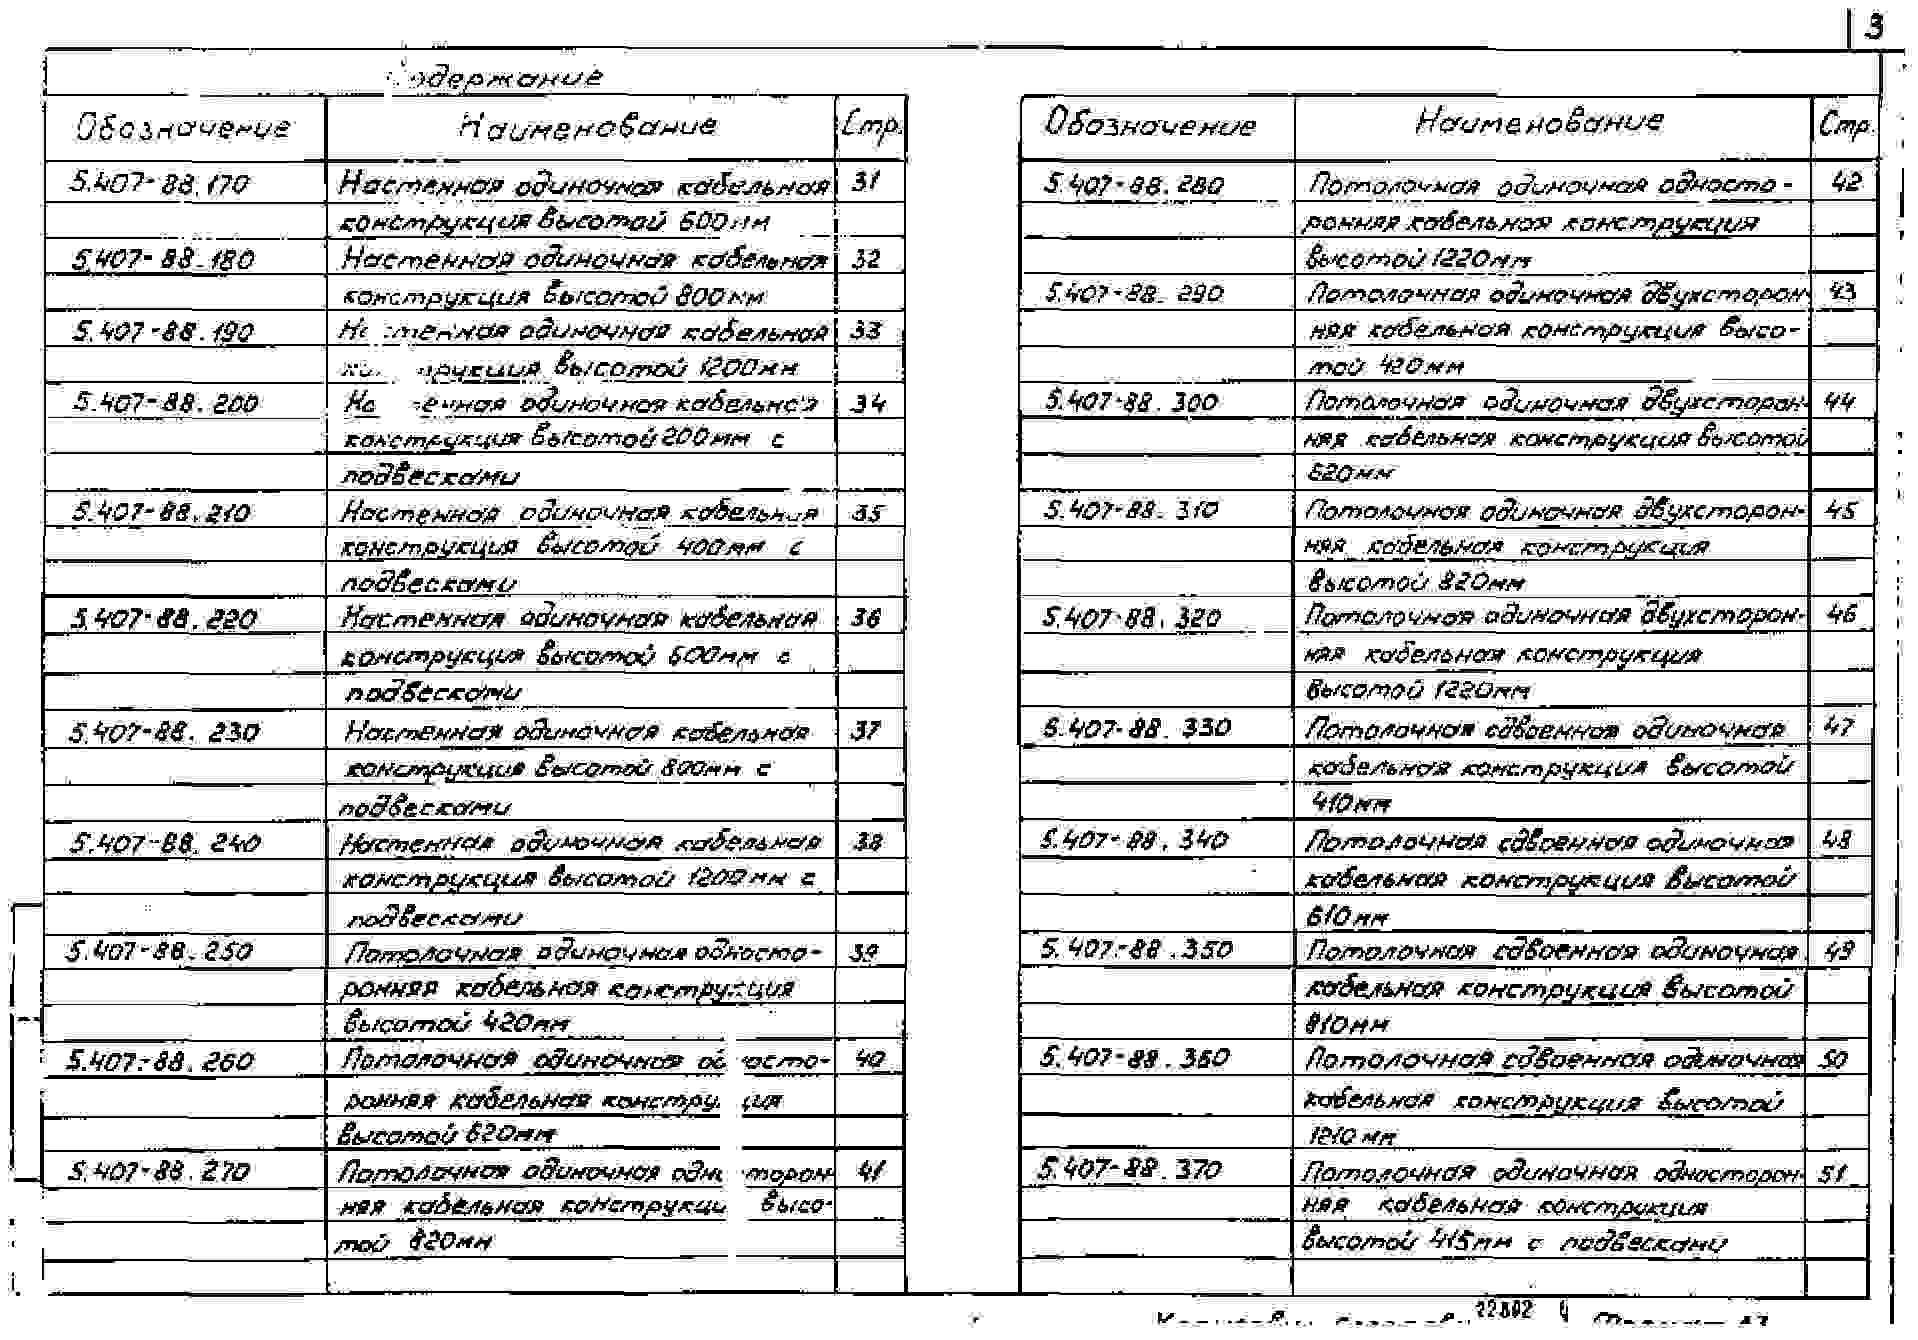 3
Содержание
Обозначение Наименование Стр.
5.407-88.170 Настенная одиночная кабельная 31
конструкция высотой 600мм
5.407-88.180 Настенная одиночная кабельная 32
конструкция высотой 800мм
5.407-88.190 Настенная одиночная кабельная 33
конструкция высотой 1200мм
5.407-88.200 Настенная одиночная кабельная 34
конструкция высотой 200мм с
подвесками
5.407-88.210 Настенная одиночная кабельная 35
конструкция высотой 400мм с
подвесками
5.407-88.220 Настенная одиночная кабельная 36
конструкция высотой 600мм с
подвесками
5.407-88.230 Настенная одиночная кабельная 37
конструкция высотой 800мм с
подвесками
5.407-88.240 Настенная одиночная кабельная 38
конструкция высотой 1200мм с
подвесками
5.407-88.250 Потолочная одиночная односто- 39
ронняя кабельная конструкция
высотой 420мм
5.407-88.260 Потолочная одиночная односто- 40
ронняя кабельная конструкция
высотой 620мм
5.407-88.270 Потолочная одиночная односторон- 41
няя кабельная конструкция высо-
той 820мм
Обозначение Наименование Стр.
5.407-88.280 Потолочная одиночная односто- 42
ронняя кабельная конструкция
высотой 1220мм
5.407-88.290 Потолочная одиночная двухсторон- 43
няя кабельная конструкция высо-
той 420мм
5.407-88.300 Потолочная одиночная двухсторон- 44
няя кабельная конструкция высотой
620мм
5.407-88.310 Потолочная одиночная двухсторон- 45
няя кабельная конструкция
высотой 820мм
5.407-88.320 Потолочная одиночная двухсторон- 46
няя кабельная конструкция
высотой 1220мм
5.407-88.330 Потолочная сдвоенная одиночная 47
кабельная конструкция высотой
410мм
5.407-88.340 Потолочная сдвоенная одиночная 48
кабельная конструкция высотой
610мм
5.407-88.350 Потолочная сдвоенная одиночная 49
кабельная конструкция высотой
810мм
5.407-88.360 Потолочная сдвоенная одиночная 50
кабельная конструкция высотой
1210мм
5.407-88.370 Потолочная одиночная односторон- 51
няя кабельная конструкция
высотой 415мм с подвесками
22802 4